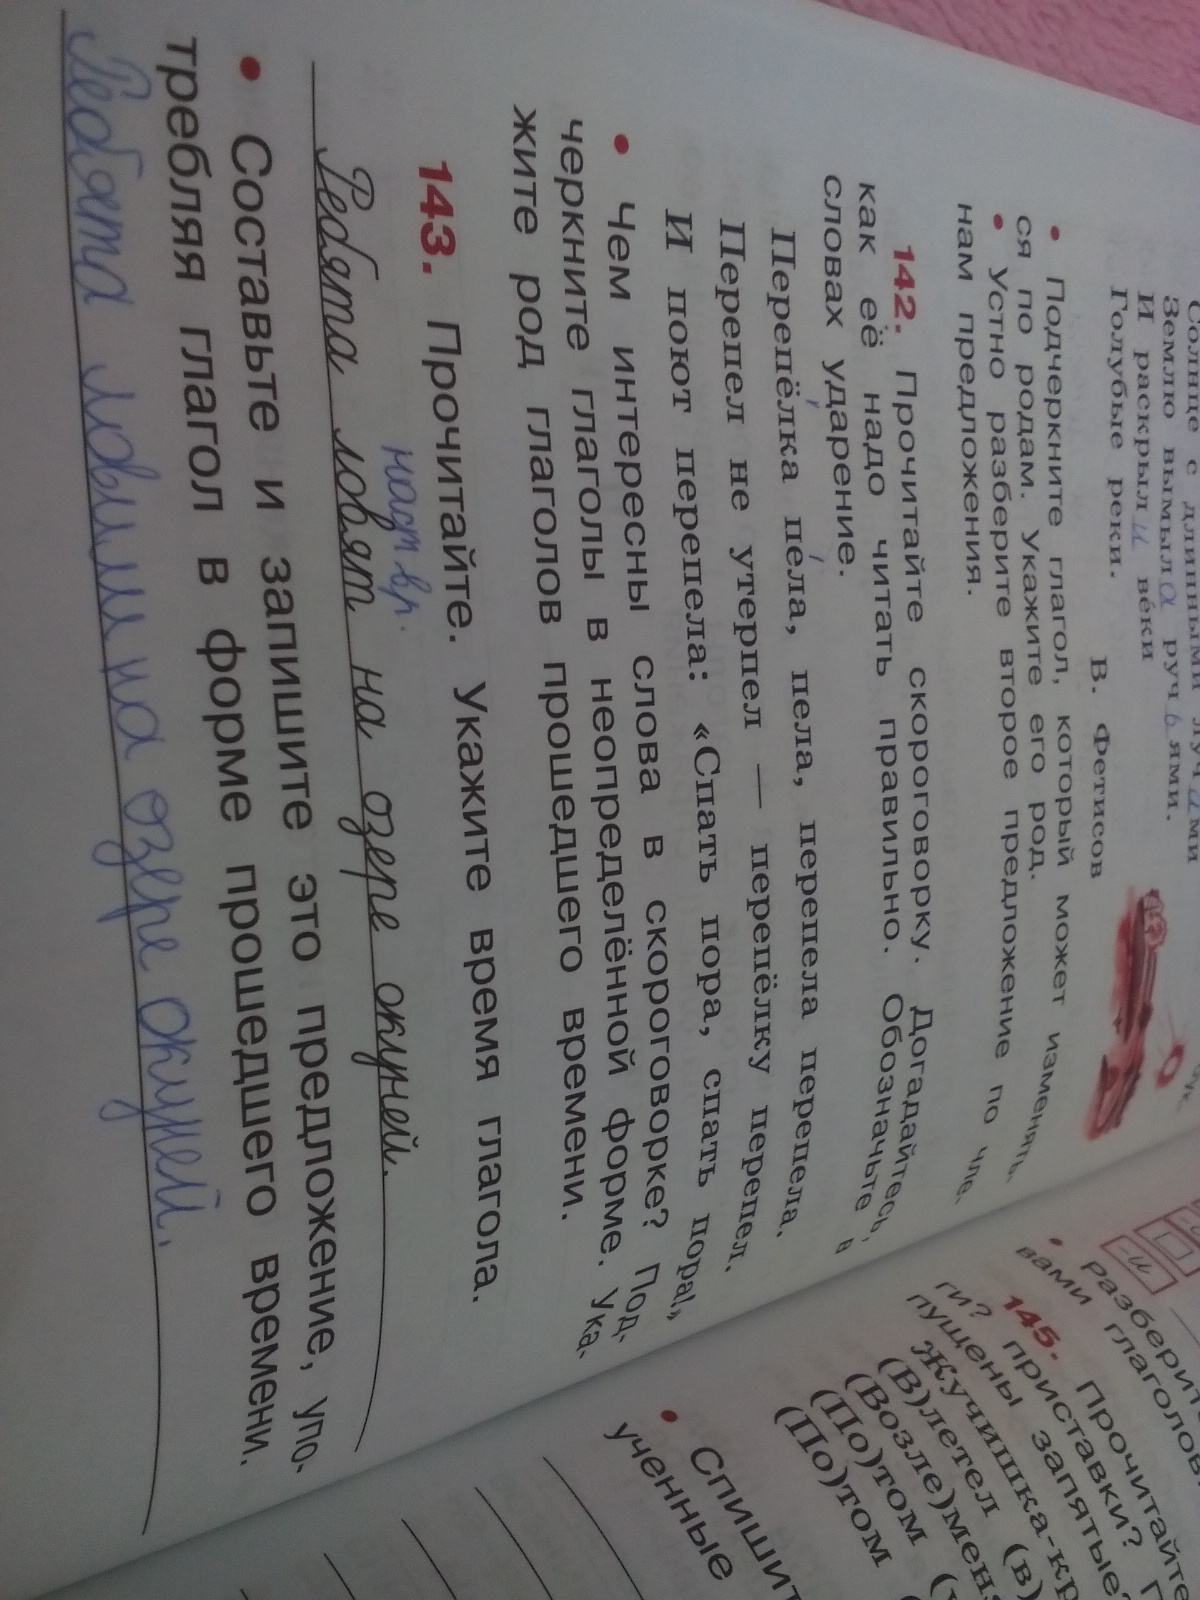 Солнце с длинными
Землю вымыла ручьями.
И раскрыли веки
Голубые реки.
В. Фетисов
• Подчеркните глагол, который может изменять-
ся по родам. Укажите его род.
• Устно разберите второе предложение по чле-
нам предложения.
142. Прочитайте скороговорку. Догадайтесь,
как её надо читать правильно. Обозначьте в
словах ударение.
Перепёлка пела, пела, перепела перепела.
Перепел не утерпел — перепёлку перепел.
И поют перепела: «Спать пора, спать пора!»
• Чем интересны слова в скороговорке? Под-
черкните глаголы в неопределённой форме. Ука-
жите род глаголов прошедшего времени.
143. Прочитайте. Укажите время глагола.
наст вр.
Ребята ловят на озере окуней.
• Составьте и запишите это предложение, упо-
требляя глагол в форме прошедшего времени.
Ребята ловили на озере окуней.
и
разберит
вами глаголов
145. Прочитайте
ги? приставки?
пущены запятые?
Жучишка-кр
(В)летел (в)
(Возле)мен
(По)том (
(По)том (
• Спишит
ученные